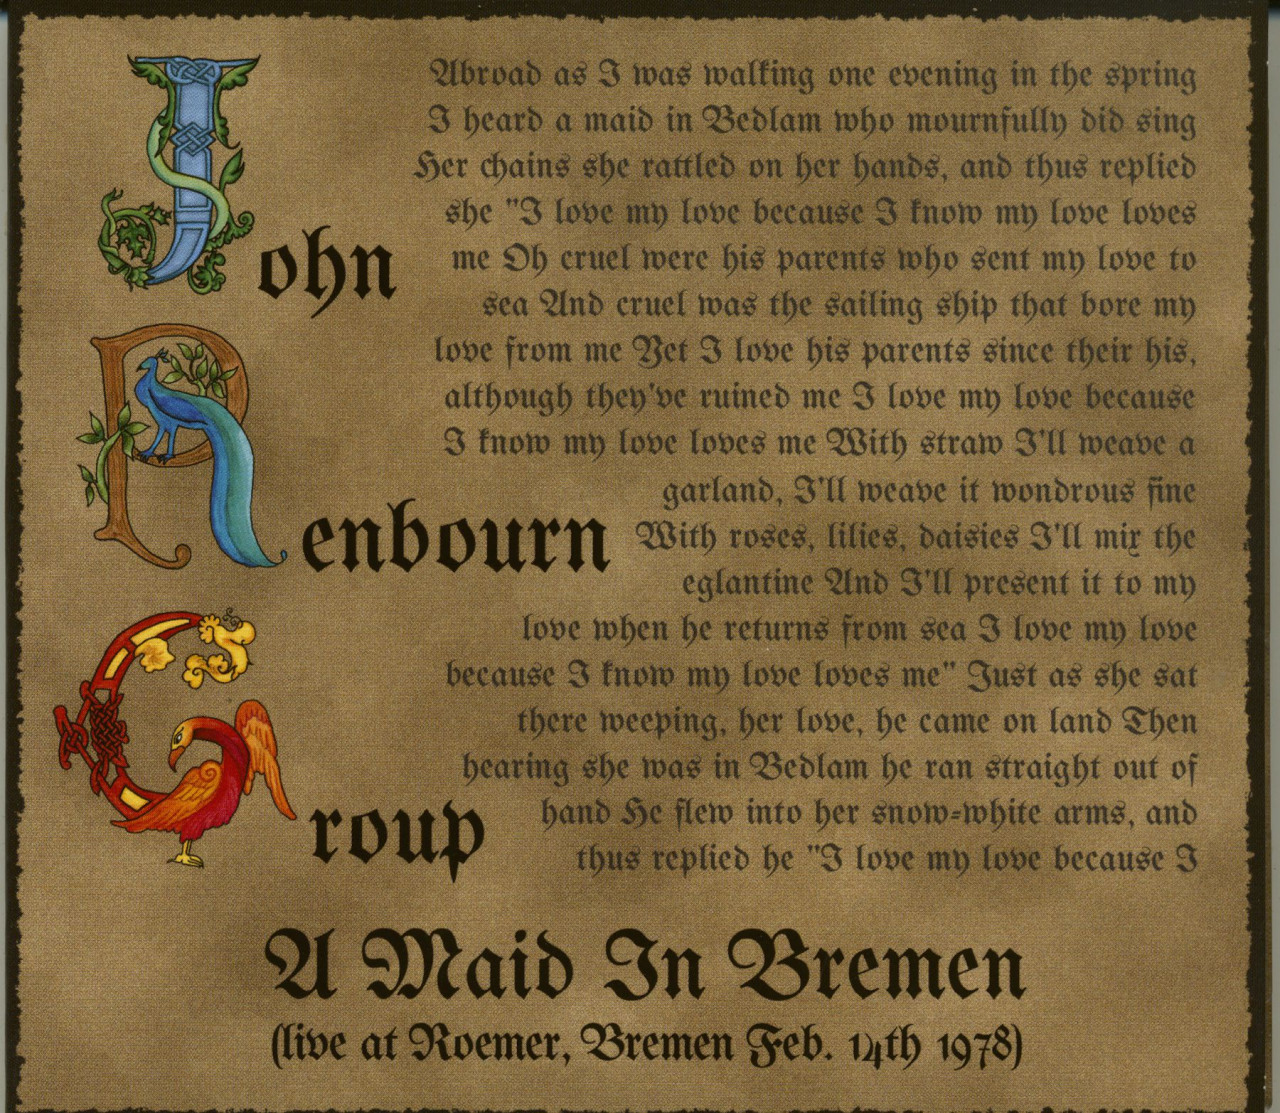 John
Renbourn
Group
Abroad as I was walking one evening in the spring
I heard a maid in Bedlam who mournfully did sing
Her chains she rattled on her hands, and thus replied
she "I love my love because I know my love loves
me Oh cruel were his parents who sent my love to
sea And cruel was the sailing ship that bore my
love from me Yet I love his parents since their his,
although they've ruined me I love my love because
I know my love loves me With straw I'll weave a
garland, I'll weave it wondrous fine
With roses, lilies, daisies I'll mix the
eglantine And I'll present it to my
love when he returns from sea I love my love
because I know my love loves me" Just as she sat
there weeping, her love, he came on land Then
hearing she was in Bedlam he ran straight out of
hand He flew into her snow-white arms, and
thus replied he "I love my love because I
A Maid In Bremen
(live at Roemer, Bremen Feb. 14th 1978)